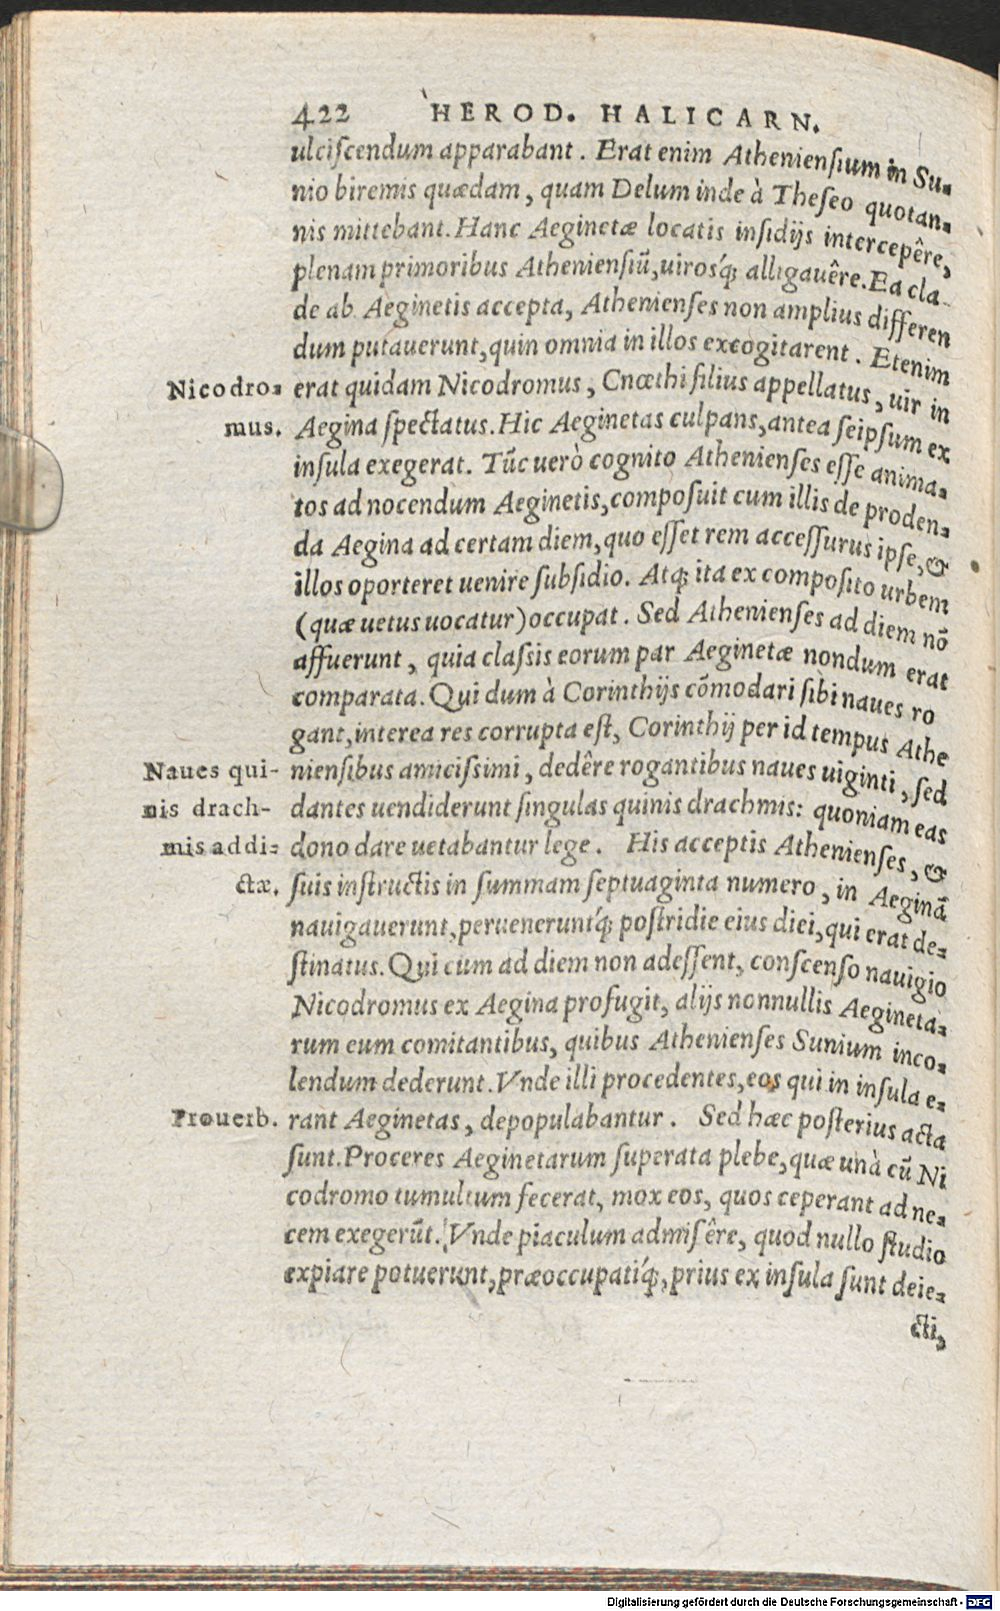 422 HEROD. HALICARN.
ulciscendum apparabant. Erat enim Atheniensium in Su-
nio biremis quædam, quam Delum inde à Theseo quotan-
nis mittebant. Hanc Aeginetæ locatis insidijs intercepêre,
plenam primoribus Atheniensiũ, uirosq́; alligauêre. Ea cla-
de ab Aeginetis accepta, Athenienses non amplius differen
dum putauerunt, quin omnia in illos excogitarent. Etenim
Nicodro-
erat quidam Nicodromus, Cnœthi filius appellatus, uir in
mus.
Aegina spectatus. Hic Aeginetas culpans, antea seipsum ex
insula exegerat. Tũc uerò cognito Athenienses esse anima-
tos ad nocendum Aeginetis, composuit cum illis de proden-
da Aegina ad certam diem, quo esset rem accessurus ipse, &
illos oporteret uenire subsidio. Atq; ita ex composito urbem
(quæ uetus uocatur) occupat. Sed Athenienses ad diem nõ
affuerunt, quia classis eorum par Aeginetæ nondum erat
comparata. Qui dum à Corinthijs cõmodari sibi naues ro
gant, interea res corrupta est, Corinthij per id tempus Athe
Naues qui-
niensibus amicissimi, dedêre rogantibus naues uiginti, sed
nis drach-
dantes uendiderunt singulas quinis drachmis: quoniam eas
mis addi-
dono dare uetabantur lege. His acceptis Athenienses, &
ctæ.
suis instructis in summam septuaginta numero, in Aeginã
nauigauerunt, perueneruntq́; postridie eius diei, qui erat de-
stinatus. Qui cum ad diem non adessent, conscenso nauigio
Nicodromus ex Aegina profugit, alijs nonnullis Aegineta-
rum eum comitantibus, quibus Athenienses Sunium inco-
lendum dederunt. Vnde illi procedentes, eos qui in insula e-
Prouerb.
rant Aeginetas, depopulabantur. Sed hæc posterius acta
sunt. Proceres Aeginetarum superata plebe, quæ unà cũ Ni
codromo tumultum fecerat, mox eos, quos ceperant ad ne-
cem exegerũt. Vnde piaculum admisêre, quod nullo studio
expiare potuerunt, præoccupatiq́;, prius ex insula sunt deie-
cti,
Digitalisierung gefördert durch die Deutsche Forschungsgemeinschaft - DFG